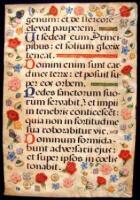 genum: et de stercore
elevat pauperem,
Ut sedeat cum Prin-
cipibus: et solium gloriae
teneat.
Domini enim sunt car-
dines terre: et posuit su-
per eos orbem.
Pedes sanctorum suo-
rum servabit, et impii
in tenebris conticescet:
quia non in fortitudine
sua roborabitur vir.
Dominum formida-
bunt adversarii eius:
et super ipsos in coelis
tonabit.